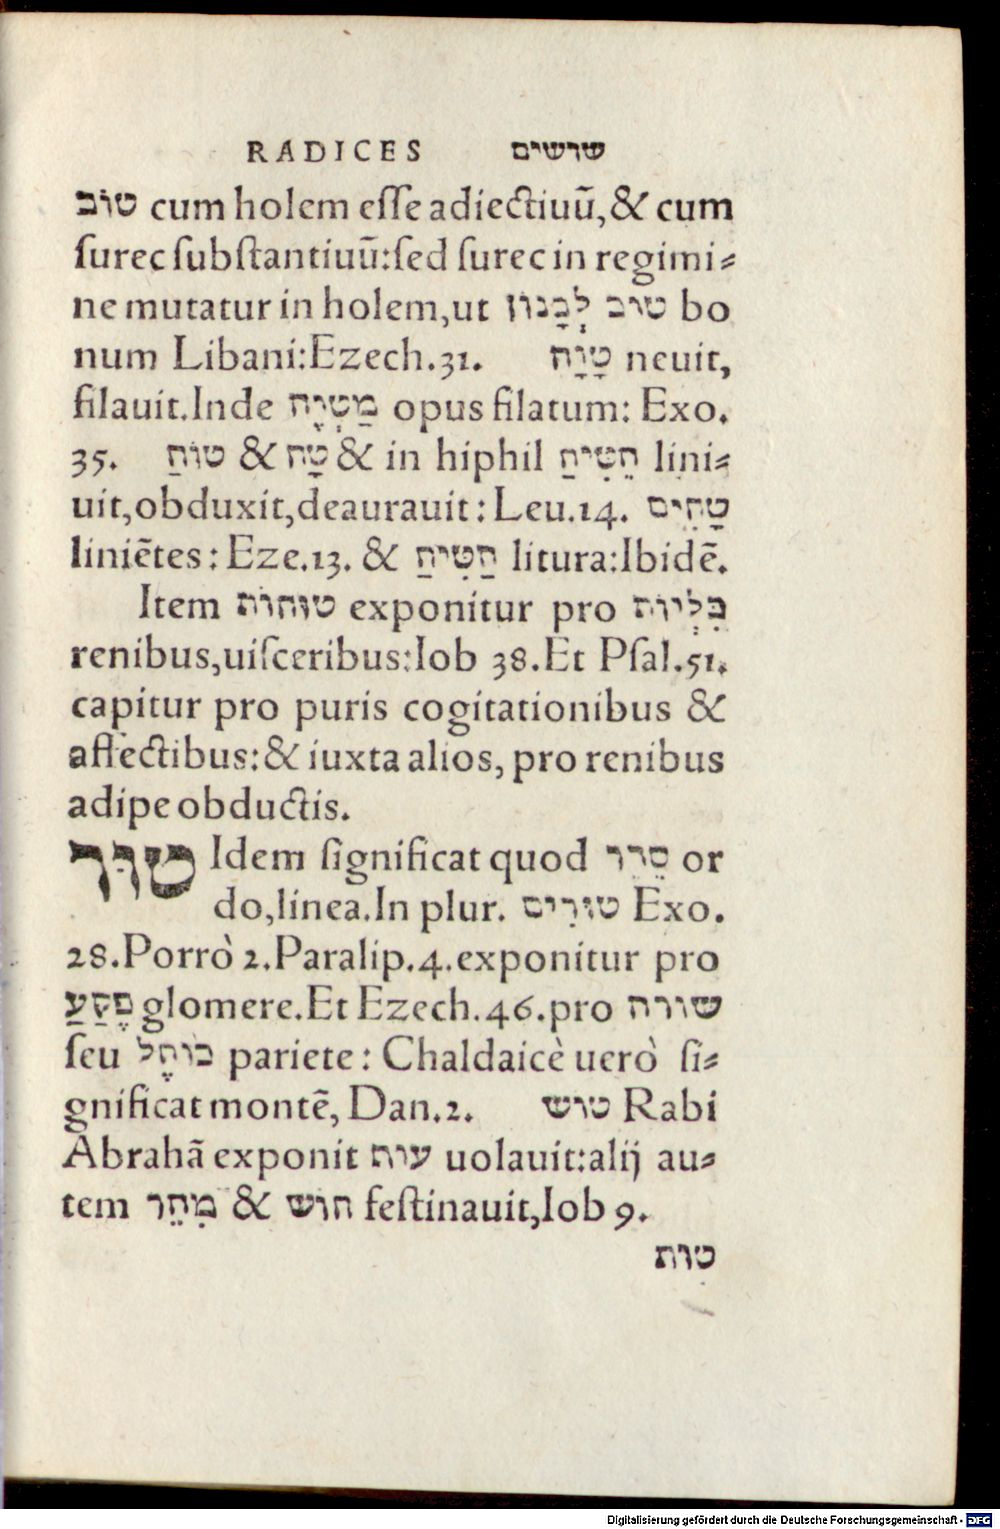 RADICES שרשים
טוֹב cum holem eſſe adiectiuũ,& cum
ſurec ſubſtantiuũ:ſed ſurec in regimi⸗
ne mutatur in holem,ut טוב לְבָנון bo
num Libani:Ezech.31. טָוָה neuit,
filauit.Inde מַטְוֶה opus filatum: Exo.
35. טוֹחַ & טָח & in hiphil הֵטִיחַ lini⸗
uit,obduxit,deaurauit: Leu.14. טָחִים
liniẽtes: Eze.13. & הַטִיחַ litura:Ibidẽ.
Item טוּחוֹת exponitur pro כִּלְיוֹת
renibus,uiſceribus:Iob 38.Et Pſal.51.
capitur pro puris cogitationibus &
affectibus:& iuxta alios, pro renibus
adipe obductis.
טוּר Idem ſignificat quod סֵדֶר or
do,linea.In plur. טוּרִים Exo.
28.Porrò 2.Paralip.4.exponitur pro
פֶקַע glomere.Et Ezech.46.pro שורה
ſeu כוֹתֶל pariete: Chaldaicè uerò ſi⸗
gnificat montẽ, Dan.2. טוש Rabi
Abrahã exponit עות uolauit:alij au⸗
tem מִהֵר & חוּש feſtinauit,Iob 9.
טות
Digitalisierung gefördert durch die Deutsche Forschungsgemeinschaft - DFG